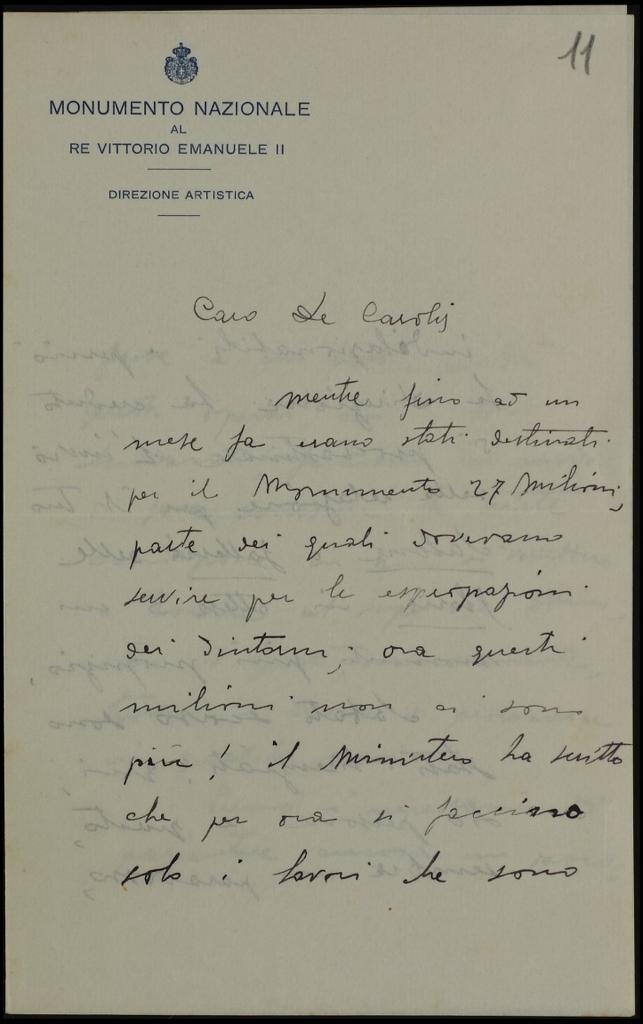 11
MONUMENTO NAZIONALE
AL
RE VITTORIO EMANUELE II
DIREZIONE ARTISTICA
Caro De Carolis
mentre fino ad un
mese fa erano stati destinati
per il Monumento 27 milioni,
parte dei quali dovevano
servire per le espropazioni
dei dintorni; ora questi
milioni non ci sono
più! il Ministero ha scritto
che per ora si facciano
solo i lavori che sono